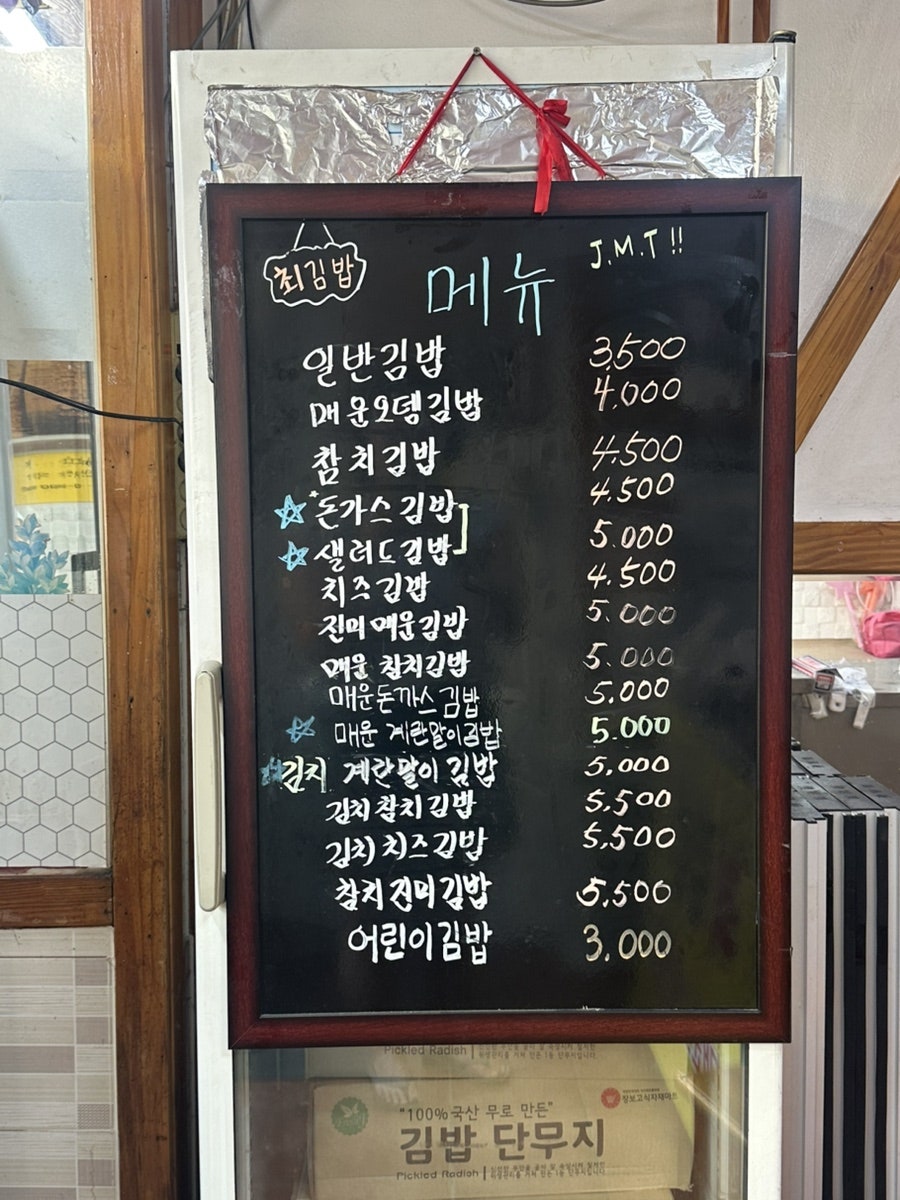 최김밥
메뉴
J.M.T !!
일반김밥 3,500
매운오뎅김밥 4.000
참치김밥 4.500
돈까스김밥 4.500
샐러드김밥 5.000
치즈김밥 4.500
진미매운김밥 5.000
매운 참치김밥 5.000
매운돈까스김밥 5.000
매운 계란말이김밥 5.000
김치 계란말이김밥 5.000
김치참치김밥 5.500
김치치즈김밥 5.500
참치진미김밥 5.500
어린이김밥 3.000
Pickled Radish
"100% 국산 무로 만든"
김밥 단무지
Pickled Radish
장보고식자재마트